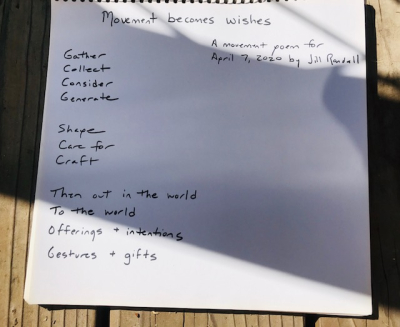 Movement becomes wishes
A movement poem for
April 7, 2020 by Jill Randall
Gather
Collect
Consider
Generate
Shape
Care for
Craft
Then out in the world
To the world
Offerings + intentions
Gestures + gifts